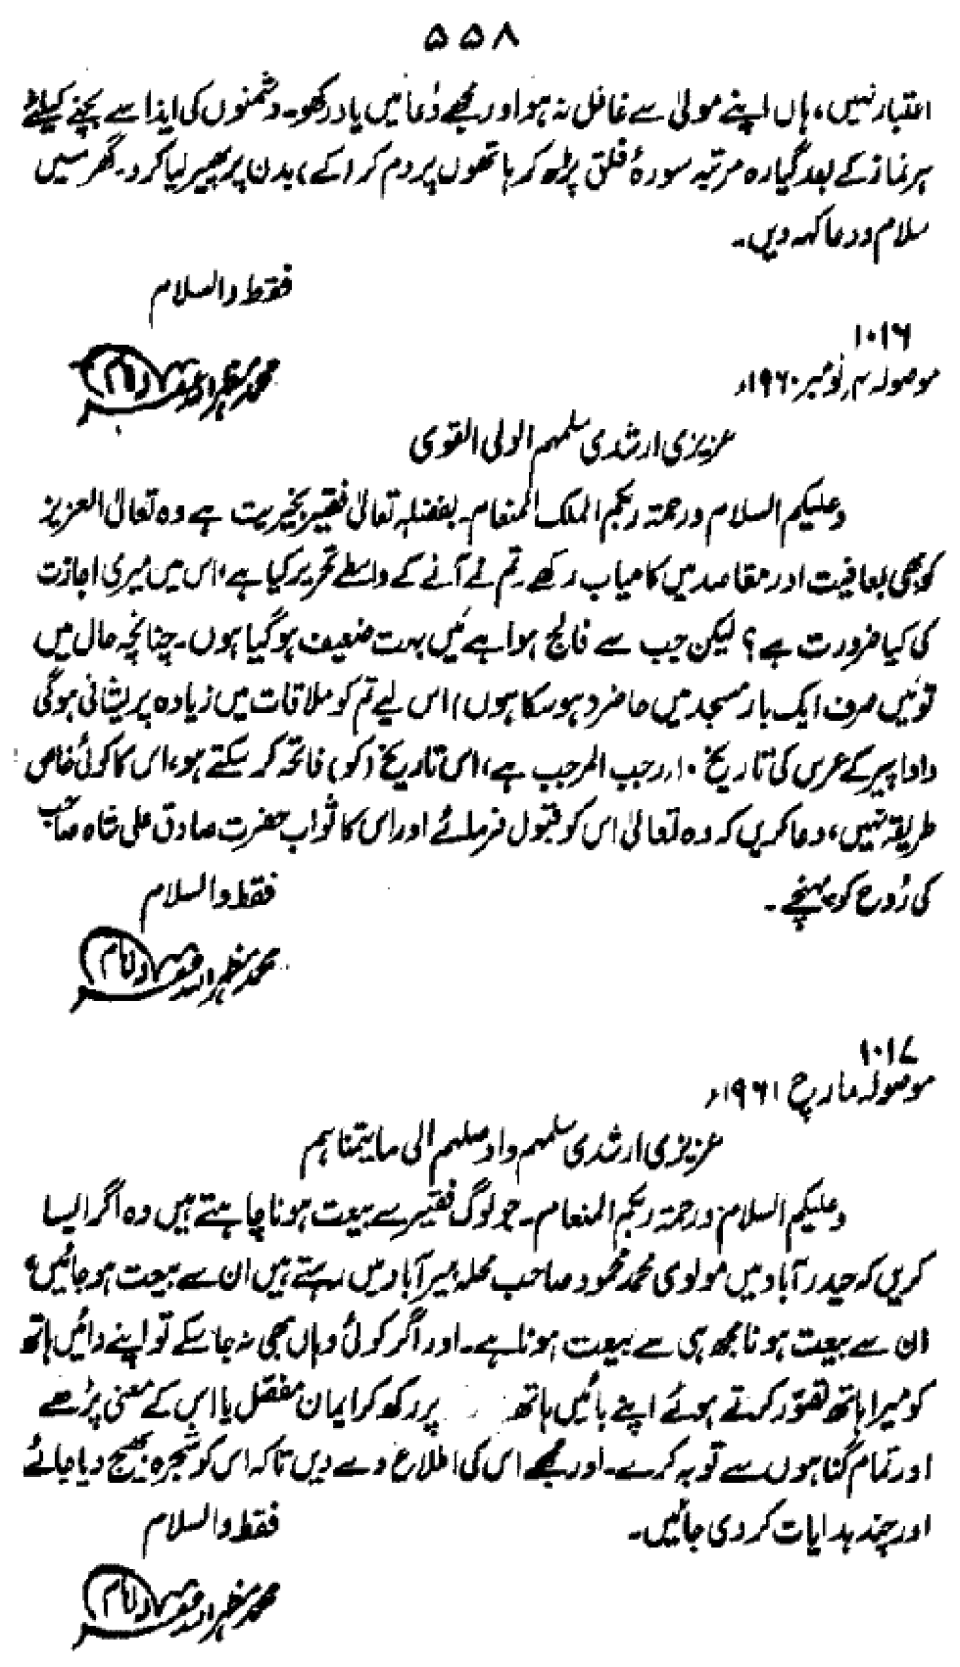 ۵۵۸
اعتبار نہیں، ہاں اپنے مولیٰ سے غافل نہ ہو اور مجھے دُعا میں یاد رکھو۔ دشمنوں کی ایذا سے بچنے کیلئے
ہر نماز کے بعد گیارہ مرتبہ سورۂ فلق پڑھ کر ہاتھوں پر دم کر (کے) بدن پر پھیر لیا کرو۔ گھر میں
سلام و دعا کہہ دیں۔
فقط والسلام
محمد مظہر اللہ
۱۰۱۶
موصولہ ۴ر نومبر ۱۹۶۰ء
عزیزی ارشدی سلمہم الولی القوی
وعلیکم السلام ورحمۃ ربکم الملک المنعام۔ بفضلہٖ تعالیٰ فقیر بخیریت ہے وہ تعالیٰ العزیز
کو بھی بعافیت اور مقاصد میں کامیاب رکھے۔ تم نے آنے کے واسطے تحریر کیا ہے، اس میں میری اجازت
کی کیا ضرورت ہے؟ لیکن جب سے فالج ہوا ہے مَیں بہت ضعیف ہو گیا ہوں۔ چنانچہ حال میں
تو میں صرف ایک بار مسجد میں حاضر (ہو سکا ہوں) اس لیے تم کو ملاقات میں زیادہ پریشانی ہو گی
دادا پیر کے عرس کی تاریخ ۱۰ر رجب المرجب ہے، اسی تاریخ (کو) فاتحہ کر سکتے ہو، اس کا کوئی خاص
طریقہ نہیں، دعا کریں کہ وہ تعالیٰ اس کو قبول فرمائے اور اس کا ثواب حضرت صادق علی شاہ صاحب
کی رُوح کو پہنچے۔
فقط والسلام
محمد مظہر اللہ
۱۰۱۷
موصولہ مارچ ۱۹۶۱ء
عزیزی ارشدی سلمہم واوصلہم الی مایتمناہم
وعلیکم السلام ورحمۃ ربکم المنعام۔ جو لوگ فقیر سے بیعت ہونا چاہتے ہیں وہ اگر ایسا
کریں کہ حیدرآباد میں مولوی محمد محمود صاحب محلہ ہیرآباد میں رہتے ہیں ان سے بیعت ہو جائیں،
ان سے بیعت ہونا مجھ ہی سے بیعت ہونا ہے۔ اور اگر کوئی وہاں بھی نہ جا سکے تو اپنے دائیں ہاتھ
کو میرا ہاتھ تصوّر کرتے ہوئے اپنے بائیں ہاتھ پر رکھ کر ایمان مفصّل یا اس کے معنی پڑھے
اور تمام گناہوں سے توبہ کرے۔ اور مجھے اس کی اطلاع دے دیں تاکہ اس کو شجرہ بھیج دیا جائے
اور چند ہدایات کر دی جائیں۔
فقط والسلام
محمد مظہر اللہ